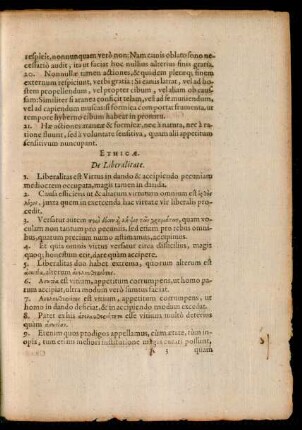 respicit, nonnunquam verò non: Nam canis oblato sono ne-
cessariò audit, ita ut faciat hoc nullius alterius finis gratia.
20. Nonnullæ tamen actiones, & quidem pleræq; finem
externum respiciunt, verbi gratia: Si canis latrat, vel ad ho-
stem propellendum, vel propter cibum, vel aliam ob cau-
sam: Similiter si aranea conficit telam, vel ad se muniendum,
vel ad capiendum muscas: si formica comportat frumenta, ut
tempore hyberno cibum habeat in promtu.
21. Hæ actiones araneæ & formicæ, nec à natura, nec à ra-
tione fiunt, sed à voluntate sensitiva, quam alii appetitum
sensitivum nuncupant.
ETHICÆ.
De Liberalitate.
1. Liberalitas est Virtus in dando & accipiendo pecuniam
mediocrem occupata, magis tamen in danda.
2. Causa efficiens ut & aliarum virtutum omnium est
juxta quem in exercenda hac virtute vir liberalis pro-
cedit.
3. Versatur autem quam voca-
lum non tantum pro pecuniis, sed etiam pro rebus omni-
bus, quarum precium numo æstimamus, accipimus.
4. Et quia omnis virtus versatur circa difficilius, magis-
quoq; honestum est, dare quàm accipere.
5. Liberalitas duo habet extrema, quorum alterum est
alterum
6. est vitium, appetitum corrumpens, ut homo pa-
rum accipiat, ultra modum verò sumtus faciat.
7. est vitium, appetitum corrumpens, ut
homo in dando deficiat, & in accipiendo modum excedat.
8. Patet exhis esse vitium multò deterius
quàm
9. Etenim quos prodigos appellamus, cùm ætate, tùm ino-
pia, tum etiam meliori institutione magis curari possunt,
A 3 quam